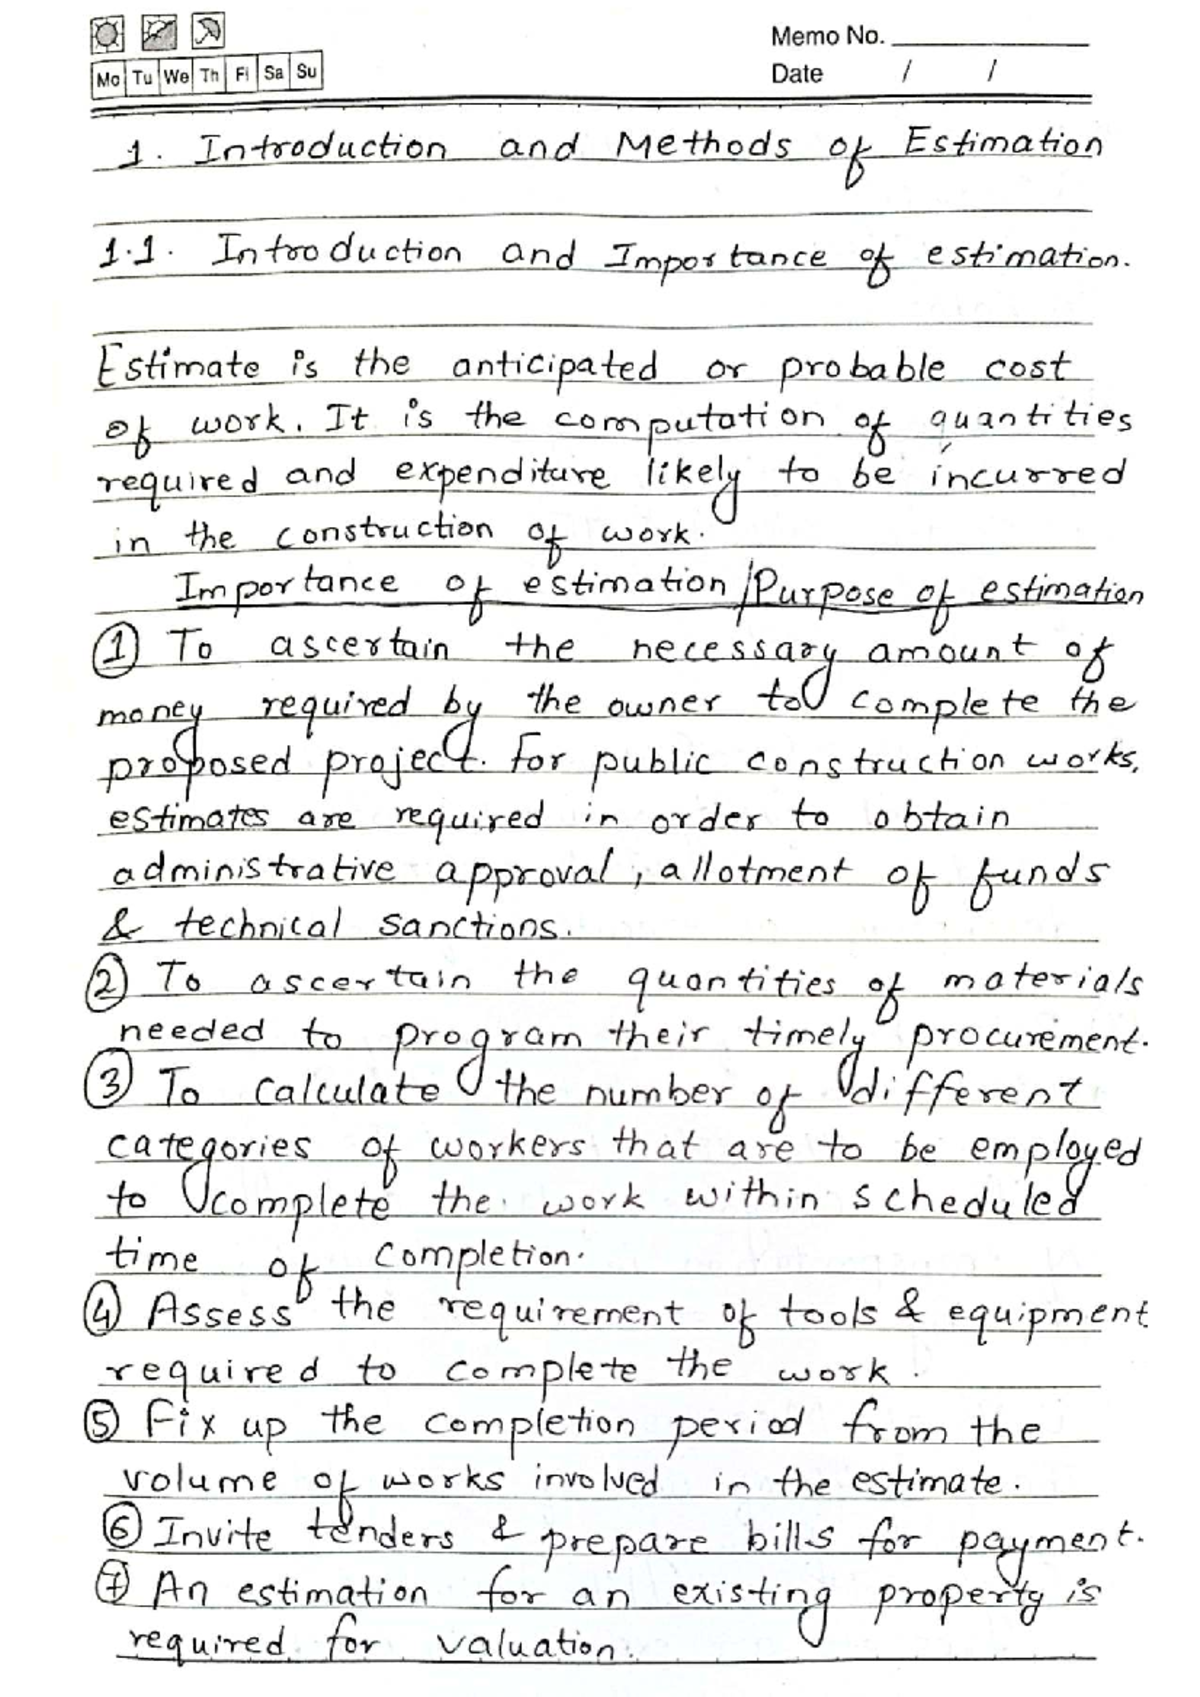 Memo No.
Mo Tu We Th Fi Sa Su
Date / /
1. Introduction and Methods of Estimation
1.1. Introduction and Importance of estimation.
Estimate is the anticipated or probable cost
of work. It is the computation of quantities
required and expenditure likely to be incurred
in the construction of work.
Importance of estimation/Purpose of estimation
① To ascertain the necessary amount of
money required by the owner to complete the
proposed project. For public construction works,
estimates are required in order to obtain
administrative approval, allotment of funds
& technical sanctions.
② To ascertain the quantities of materials
needed to program their timely procurement.
③ To calculate the number of different
categories of workers that are to be employed
to complete the work within scheduled
time of completion.
④ Assess the requirement of tools & equipment
required to complete the work.
⑤ Fix up the completion period from the
volume of works involved in the estimate.
⑥ Invite tenders & prepare bills for payment.
⑦ An estimation for an existing property is
required for valuation.